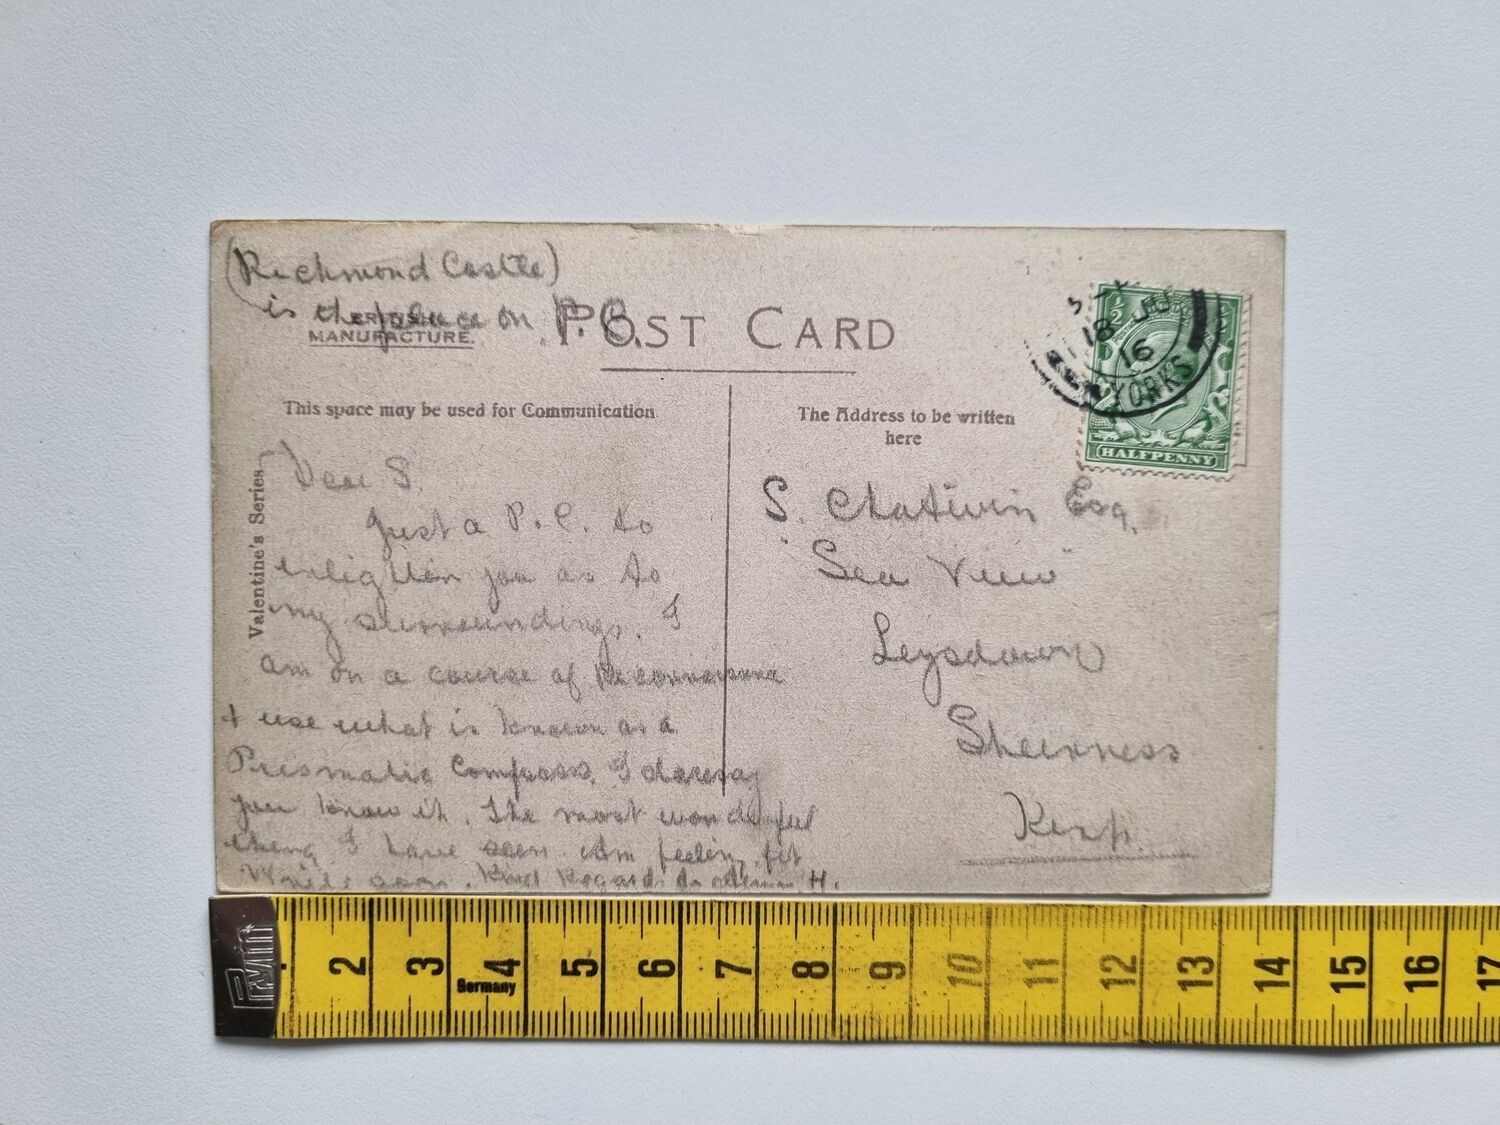 (Richmond Castle)
is the place on P.C.
BRITISH
MANUFACTURE.
POST CARD
This space may be used for Communication
The Address to be written
here
Valentine's Series
Dear S.
Just a P.C. to
enlighten you as to
my surroundings. I
am on a course of Reconnaisance
+ use what is known as a
Prismatic Compass. I daresay
you know it. The most wonderful
thing I have seen. Am feeling fit
Write soon. Kind Regards H.
S. Chatwin Esq.
"Sea View"
Leysdown
Sheerness
Kent.
18 JU
16
YORKS
½
HALFPENNY
2 3 4 5 6 7 8 9 10 11 12 13 14 15 16 17
Germany